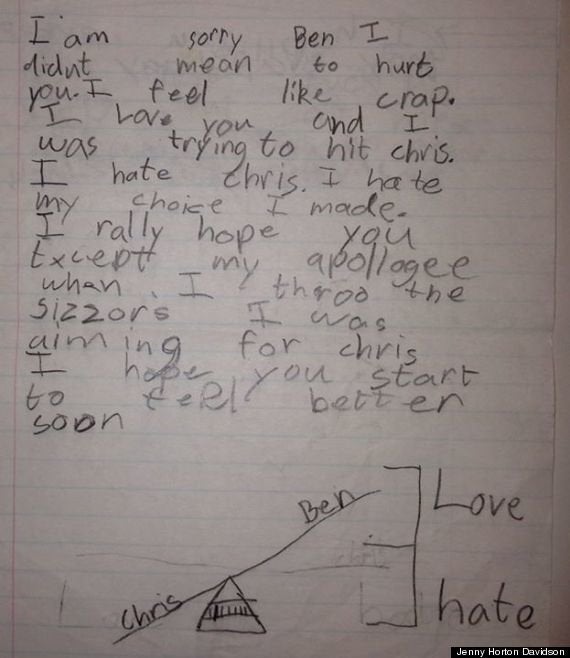 I am sorry Ben I
didnt mean to hurt
you. I feel like crap.
I Love you and I
was trying to hit chris.
I hate chris. I hate
my choice I made.
I rally hope you
Except my apollogee
when I throo the
sizzors I was
aiming for chris
I hope you start
to feel better
soon
Ben
Love
chris
hate
Jenny Horton Davidson